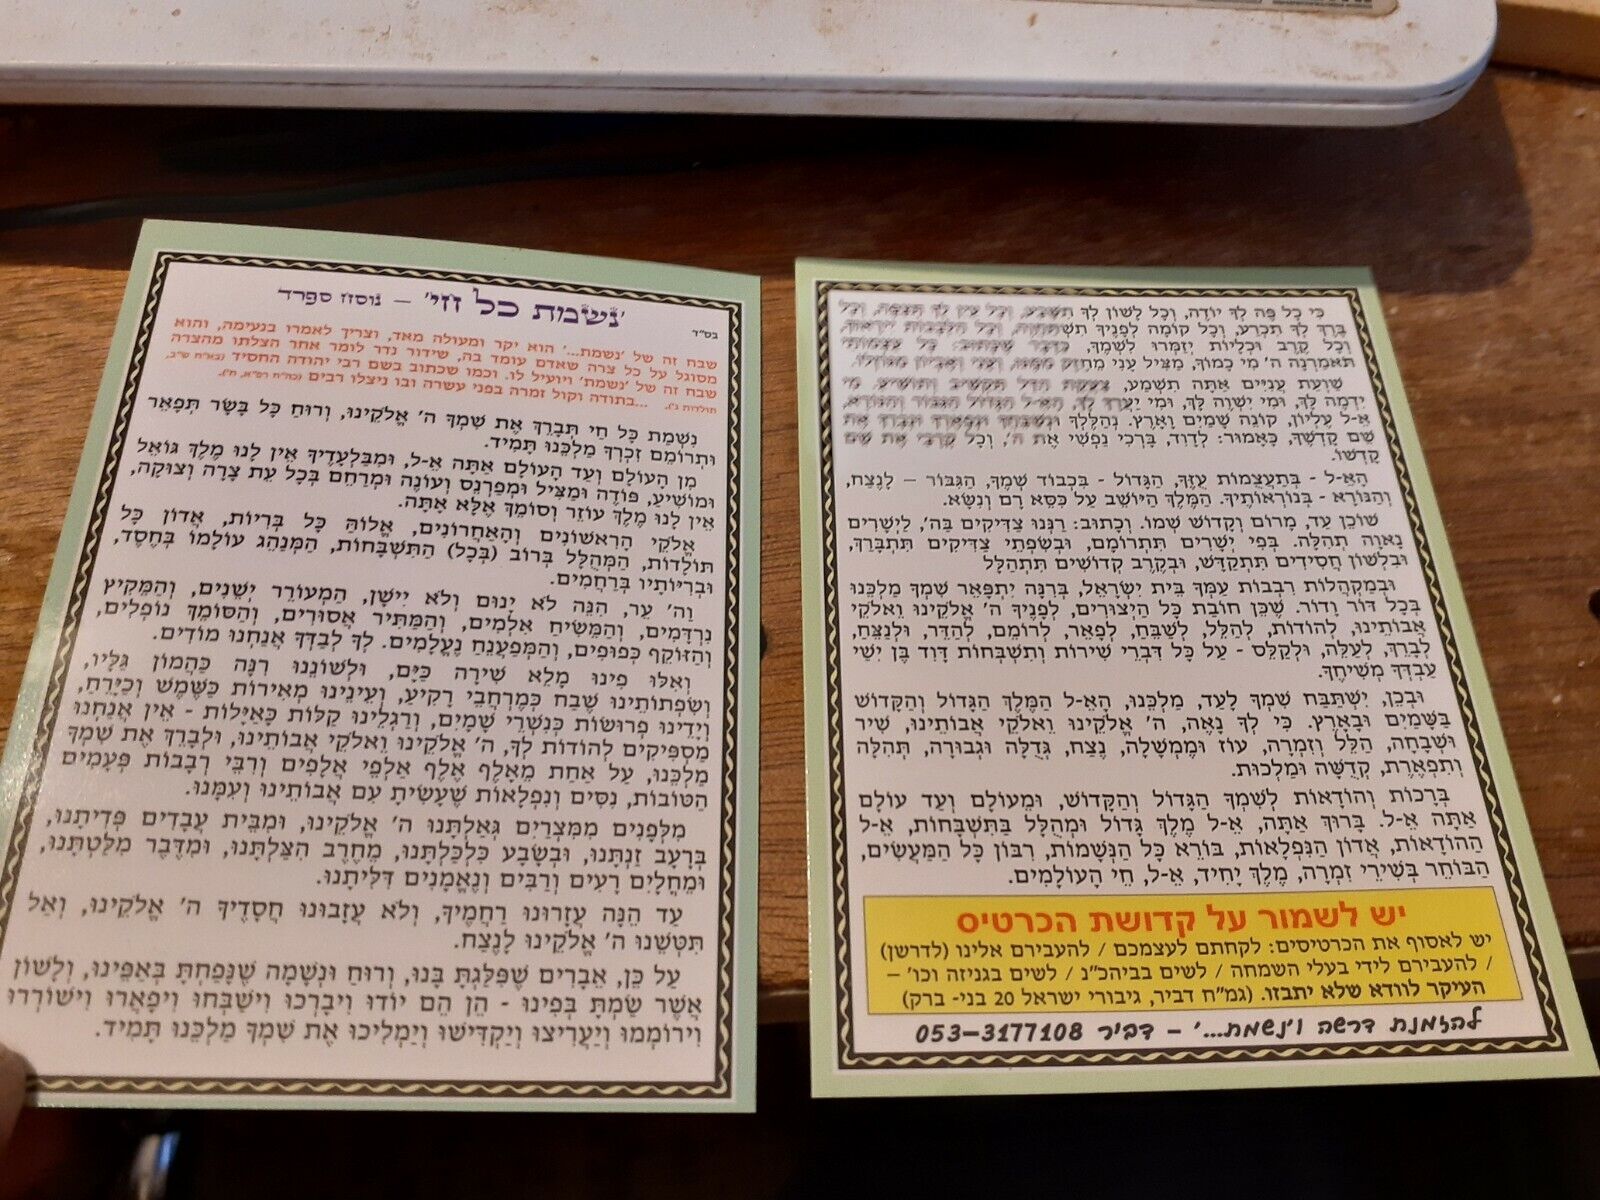 בס"ד
'נשמת כל חי' – נוסח ספרד
שבח זה של 'נשמת...' הוא יקר ומעולה מאד, וצריך לאמרו בנעימה, והוא
מסוגל על כל צרה שאדם עומד בה, שידור נדר לומר אחר הצלתו מהצרה
שבח זה של 'נשמת' ויועיל לו. וכמו שכתוב בשם רבי יהודה החסיד
...בתודה וקול זמרה בפני עשרה ובו ניצלו רבים
נִשְׁמַת כָּל חַי תְּבָרֵךְ אֶת שִׁמְךָ ה' אֱלֹקֵינוּ, וְרוּחַ כָּל בָּשָׂר תְּפָאֵר
וּתְרוֹמֵם זִכְרְךָ מַלְכֵּנוּ תָּמִיד.
מִן הָעוֹלָם וְעַד הָעוֹלָם אַתָּה אֵ-ל, וּמִבַּלְעָדֶיךָ אֵין לָנוּ מֶלֶךְ גּוֹאֵל
וּמוֹשִׁיעַ, פּוֹדֶה וּמַצִּיל וּמְפַרְנֵס וְעוֹנֶה וּמְרַחֵם בְּכָל עֵת צָרָה וְצוּקָה,
אֵין לָנוּ מֶלֶךְ עוֹזֵר וְסוֹמֵךְ אֶלָּא אָתָּה.
אֱלֹקֵי הָרִאשׁוֹנִים וְהָאַחֲרוֹנִים, אֱלוֹהַּ כָּל בְּרִיּוֹת, אֲדוֹן כָּל
תּוֹלָדוֹת, הַמְהֻלָּל בְּרוֹב (בְּכָל) הַתִּשְׁבָּחוֹת, הַמְנַהֵג עוֹלָמוֹ בְּחֶסֶד,
וּבְרִיּוֹתָיו בְּרַחֲמִים.
וַה' עֵר, הִנֵּה לֹא יָנוּם וְלֹא יִישָׁן, הַמְעוֹרֵר יְשֵׁנִים, וְהַמֵּקִיץ
נִרְדָּמִים, וְהַמֵּשִׂיחַ אִלְּמִים, וְהַמַּתִּיר אֲסוּרִים, וְהַסּוֹמֵךְ נוֹפְלִים,
וְהַזּוֹקֵף כְּפוּפִים, וְהַמְפַעְנֵחַ נֶעֱלָמִים. לְךָ לְבַדְּךָ אֲנַחְנוּ מוֹדִים.
וְאִלּוּ פִינוּ מָלֵא שִׁירָה כַּיָּם, וּלְשׁוֹנֵנוּ רִנָּה כַּהֲמוֹן גַּלָּיו,
וְשִׂפְתוֹתֵינוּ שֶׁבַח כְּמֶרְחֲבֵי רָקִיעַ, וְעֵינֵינוּ מְאִירוֹת כַּשֶּׁמֶשׁ וְכַיָּרֵחַ,
וְיָדֵינוּ פְרוּשׂוֹת כְּנִשְׁרֵי שָׁמָיִם, וְרַגְלֵינוּ קַלּוֹת כָּאַיָּלוֹת - אֵין אֲנַחְנוּ
מַסְפִּיקִים לְהוֹדוֹת לְךָ, ה' אֱלֹקֵינוּ וֵאלֹקֵי אֲבוֹתֵינוּ, וּלְבָרֵךְ אֶת שִׁמְךָ
מַלְכֵּנוּ, עַל אַחַת מֵאָלֶף אֶלֶף אַלְפֵי אֲלָפִים וְרִבֵּי רְבָבוֹת פְּעָמִים
הַטּוֹבוֹת, נִסִּים וְנִפְלָאוֹת שֶׁעָשִׂיתָ עִם אֲבוֹתֵינוּ וְעִמָּנוּ.
מִלְּפָנִים מִמִּצְרַיִם גְּאַלְתָּנוּ ה' אֱלֹקֵינוּ, וּמִבֵּית עֲבָדִים פְּדִיתָנוּ,
בְּרָעָב זַנְתָּנוּ, וּבְשָׂבָע כִּלְכַּלְתָּנוּ, מֵחֶרֶב הִצַּלְתָּנוּ, וּמִדֶּבֶר מִלַּטְתָּנוּ,
וּמֵחֳלָיִם רָעִים וְרַבִּים וְנֶאֱמָנִים דִּלִּיתָנוּ.
עַד הֵנָּה עֲזָרוּנוּ רַחֲמֶיךָ, וְלֹא עֲזָבוּנוּ חֲסָדֶיךָ ה' אֱלֹקֵינוּ, וְאַל
תִּטְּשֵׁנוּ ה' אֱלֹקֵינוּ לָנֶצַח.
עַל כֵּן, אֵבָרִים שֶׁפִּלַּגְתָּ בָּנוּ, וְרוּחַ וּנְשָׁמָה שֶׁנָּפַחְתָּ בְּאַפֵּינוּ, וְלָשׁוֹן
אֲשֶׁר שַׂמְתָּ בְּפִינוּ - הֵן הֵם יוֹדוּ וִיבָרְכוּ וִישַׁבְּחוּ וִיפָאֲרוּ וִישׁוֹרְרוּ
וִירוֹמְמוּ וְיַעֲרִיצוּ וְיַקְדִּישׁוּ וְיַמְלִיכוּ אֶת שִׁמְךָ מַלְכֵּנוּ תָּמִיד.
כִּי כָל פֶּה לְךָ יוֹדֶה, וְכָל לָשׁוֹן לְךָ תִשָּׁבַע, וְכָל עַיִן לְךָ תְצַפֶּה, וְכָל
בֶּרֶךְ לְךָ תִכְרַע, וְכָל קוֹמָה לְפָנֶיךָ תִשְׁתַּחֲוֶה, וְכָל הַלְּבָבוֹת יִירָאוּךָ,
וְכָל קֶרֶב וּכְלָיוֹת יְזַמְּרוּ לִשְׁמֶךָ, כַּדָּבָר שֶׁכָּתוּב: כָּל עַצְמוֹתַי
תֹּאמַרְנָה ה' מִי כָמוֹךָ, מַצִּיל עָנִי מֵחָזָק מִמֶּנּוּ, וְעָנִי וְאֶבְיוֹן מִגֹּזְלוֹ.
שַׁוְעַת עֲנִיִּים אַתָּה תִשְׁמַע, צַעֲקַת הַדַּל תַּקְשִׁיב וְתוֹשִׁיעַ. מִי
יִדְמֶה לָּךְ, וּמִי יִשְׁוֶה לָּךְ, וּמִי יַעֲרָךְ לָךְ, הָאֵ-ל הַגָּדוֹל הַגִּבּוֹר וְהַנּוֹרָא,
אֵ-ל עֶלְיוֹן, קוֹנֵה שָׁמַיִם וָאָרֶץ. נְהַלֶּלְךָ וּנְשַׁבֵּחֲךָ וּנְפָאֶרְךָ וּנְבָרֵךְ אֶת
שֵׁם קָדְשֶׁךָ, כָּאָמוּר: לְדָוִד, בָּרְכִי נַפְשִׁי אֶת ה', וְכָל קְרָבַי אֶת שֵׁם
קָדְשׁוֹ.
הָאֵ-ל - בְּתַעֲצֻמוֹת עֻזֶּךָ, הַגָּדוֹל - בִּכְבוֹד שְׁמֶךָ, הַגִּבּוֹר – לָנֶצַח,
וְהַנּוֹרָא - בְּנוֹרְאוֹתֶיךָ. הַמֶּלֶךְ הַיּוֹשֵׁב עַל כִּסֵּא רָם וְנִשָּׂא.
שׁוֹכֵן עַד, מָרוֹם וְקָדוֹשׁ שְׁמוֹ. וְכָתוּב: רַנְּנוּ צַדִּיקִים בַּה', לַיְשָׁרִים
נָאוָה תְהִלָּה. בְּפִי יְשָׁרִים תִּתְרוֹמָם, וּבְשִׂפְתֵי צַדִּיקִים תִּתְבָּרַךְ,
וּבִלְשׁוֹן חֲסִידִים תִּתְקַדָּשׁ, וּבְקֶרֶב קְדוֹשִׁים תִּתְהַלָּל
וּבְמַקְהֲלוֹת רִבְבוֹת עַמְּךָ בֵּית יִשְׂרָאֵל, בְּרִנָּה יִתְפָּאֵר שִׁמְךָ מַלְכֵּנוּ
בְּכָל דּוֹר וָדוֹר. שֶׁכֵּן חוֹבַת כָּל הַיְצוּרִים, לְפָנֶיךָ ה' אֱלֹקֵינוּ וֵאלֹקֵי
אֲבוֹתֵינוּ, לְהוֹדוֹת, לְהַלֵּל, לְשַׁבֵּחַ, לְפָאֵר, לְרוֹמֵם, לְהַדֵּר, וּלְנַצֵּחַ,
לְבָרֵךְ, לְעַלֵּה, וּלְקַלֵּס - עַל כָּל דִּבְרֵי שִׁירוֹת וְתִשְׁבְּחוֹת דָּוִד בֶּן יִשַׁי
עַבְדְּךָ מְשִׁיחֶךָ.
וּבְכֵן, יִשְׁתַּבַּח שִׁמְךָ לָעַד, מַלְכֵּנוּ, הָאֵ-ל הַמֶּלֶךְ הַגָּדוֹל וְהַקָּדוֹשׁ
בַּשָּׁמַיִם וּבָאָרֶץ. כִּי לְךָ נָאֶה, ה' אֱלֹקֵינוּ וֵאלֹקֵי אֲבוֹתֵינוּ, שִׁיר
וּשְׁבָחָה, הַלֵּל וְזִמְרָה, עוֹז וּמֶמְשָׁלָה, נֶצַח, גְּדֻלָּה וּגְבוּרָה, תְּהִלָּה
וְתִפְאֶרֶת, קְדֻשָּׁה וּמַלְכוּת.
בְּרָכוֹת וְהוֹדָאוֹת לְשִׁמְךָ הַגָּדוֹל וְהַקָּדוֹשׁ, וּמֵעוֹלָם וְעַד עוֹלָם
אַתָּה אֵ-ל. בָּרוּךְ אַתָּה, אֵ-ל מֶלֶךְ גָּדוֹל וּמְהֻלָּל בַּתִּשְׁבָּחוֹת, אֵ-ל
הַהוֹדָאוֹת, אֲדוֹן הַנִּפְלָאוֹת, בּוֹרֵא כָּל הַנְּשָׁמוֹת, רִבּוֹן כָּל הַמַּעֲשִׂים,
הַבּוֹחֵר בְּשִׁירֵי זִמְרָה, מֶלֶךְ יָחִיד, אֵ-ל, חֵי הָעוֹלָמִים.
יש לשמור על קדושת הכרטיס
יש לאסוף את הכרטיסים: לקחתם לעצמכם / להעבירם אלינו (לדרשן)
/ להעבירם לידי בעלי השמחה / לשים בביהכ"נ / לשים בגניזה וכו' –
העיקר לוודא שלא יתבזו. (גמ"ח דביר, גיבורי ישראל 20 בני- ברק)
להזמנת דרשה ו'נשמת...' – דביר 053–3177108